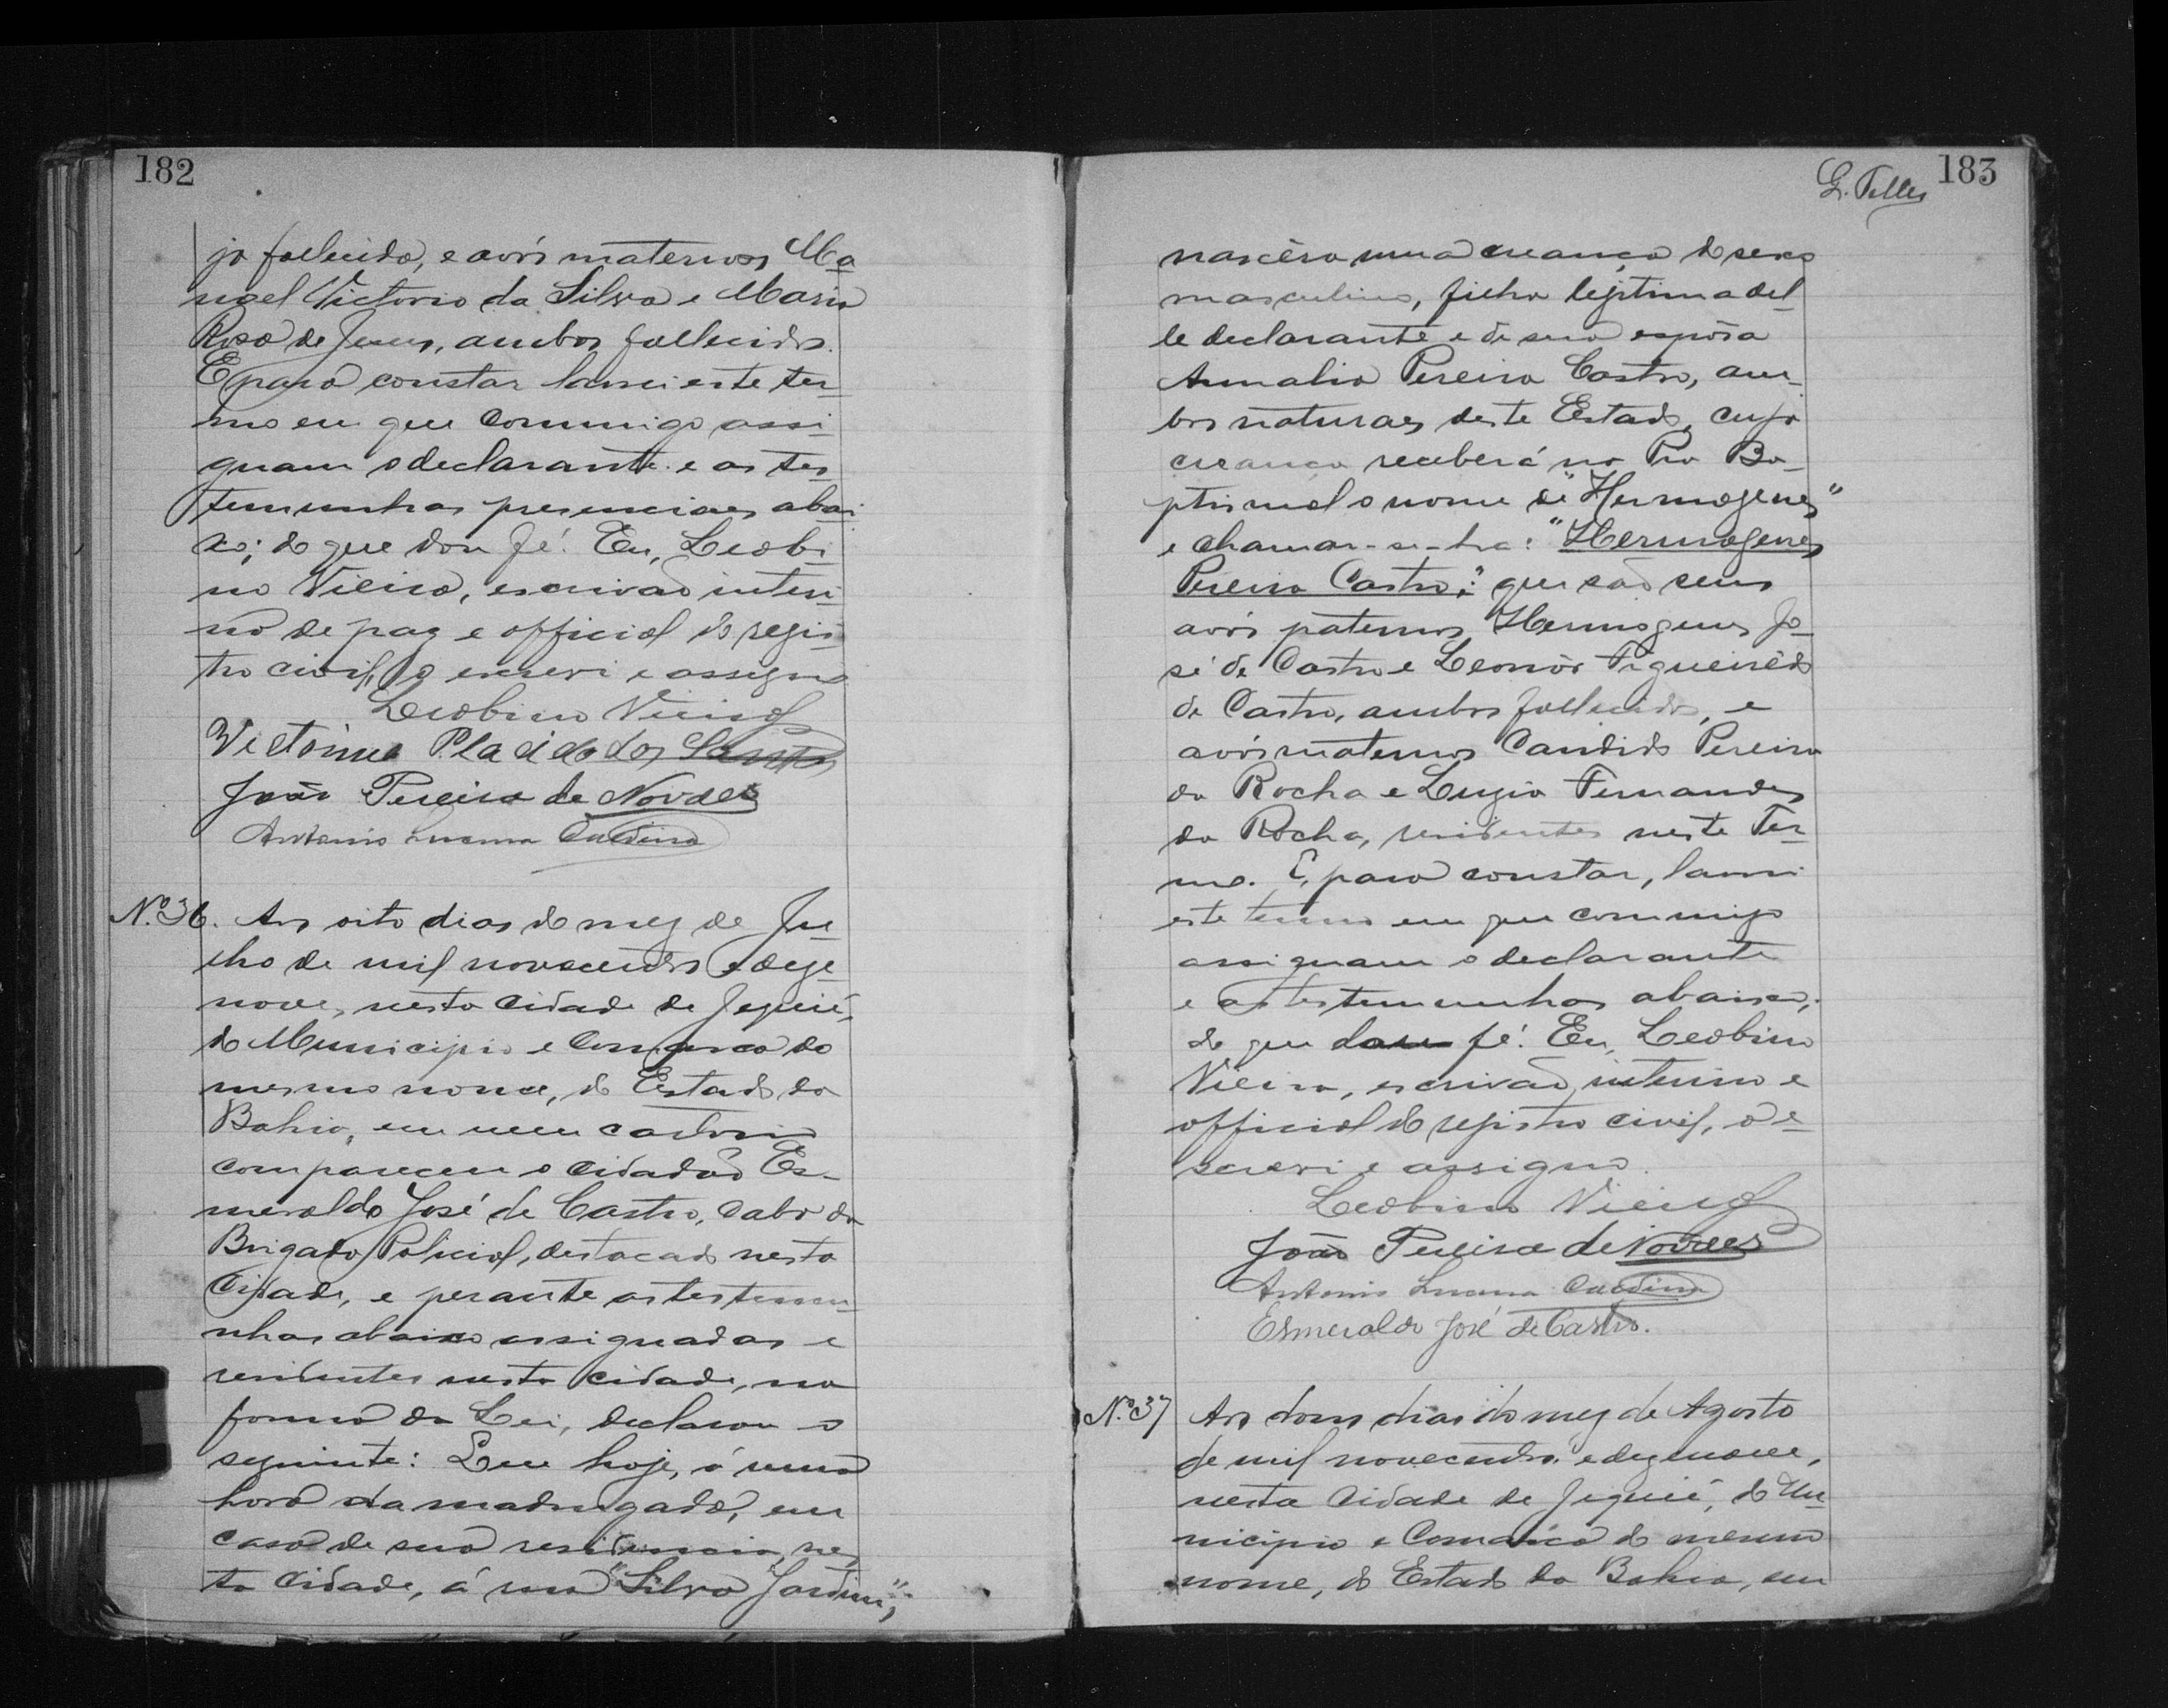 182
já fallecida, e avós maternos Ma-
noel Victorio da Silva e Maria
Rosa de Jesus, ambos fallecidos.
E para constar lavrei este ter-
mo em que commigo assi-
gnam o declarante e as tes-
temunhas presenciaes abai-
xo; do que dou fé. Eu, Leobi-
no Vieira, escrivão interi-
no de paz e official do regis-
tro civil, o escrevi e assigno
Leobino Vieira
Victorino Placido dos Santos
João Pereira de Novaes
Antonio Lucena
Nº 36. Aos oito dias do mez de Ju-
lho de mil novecentos e deze-
nove, nesta cidade de Jequié,
do Municipio e Comarca do
mesmo nome, do Estado da
Bahia, em meu cartorio
compareceu o cidadão Es-
meraldo José de Castro, cabo da
Brigada Policial, destacado nesta
Cidade, e perante as testemu-
nhas abaixo assignadas e
residentes nesta cidade, na
forma da Lei, declarou o
seguinte: Que hoje, á uma
hora da madrugada, em
casa de sua residencia, nes-
ta cidade, á rua "Silva Jardim",
G. Telles
183
nascêra uma creança do sexo
masculino, filha legitima del-
le declarante e de sua espôsa
Amalia Pereira Castro, am-
bos naturaes deste Estado, cuja
creança receberá na Pia Ba-
ptismal o nome de "Hermogenes"
e chamar-se-ha: "Hermogenes
Pereira Castro"; que são seus
avós paternos Hermogenes Jo-
sé de Castro e Leonôr Figueirêdo
de Castro, ambos fallecidos, e
avós maternos Candido Pereira
da Rocha e Luzia Fernandes
da Rocha, residentes neste Ter-
mo. E, para constar, lavrei
este termo em que commigo
assignam o declarante
e as testemunhas abaixo;
do que dou fé. Eu, Leobino
Vieira, escrivão interino e
official do registro civil, o e-
screvi e assigno.
Leobino Vieira
João Pereira de Novaes
Antonio Lucena
Esmeraldo José de Castro.
Nº 37 Aos dous dias do mez de Agosto
de mil novecentos e dezenove,
nesta Cidade de Jequié, do Mu-
nicipio e Comarca do mesmo
nome, do Estado da Bahia, em